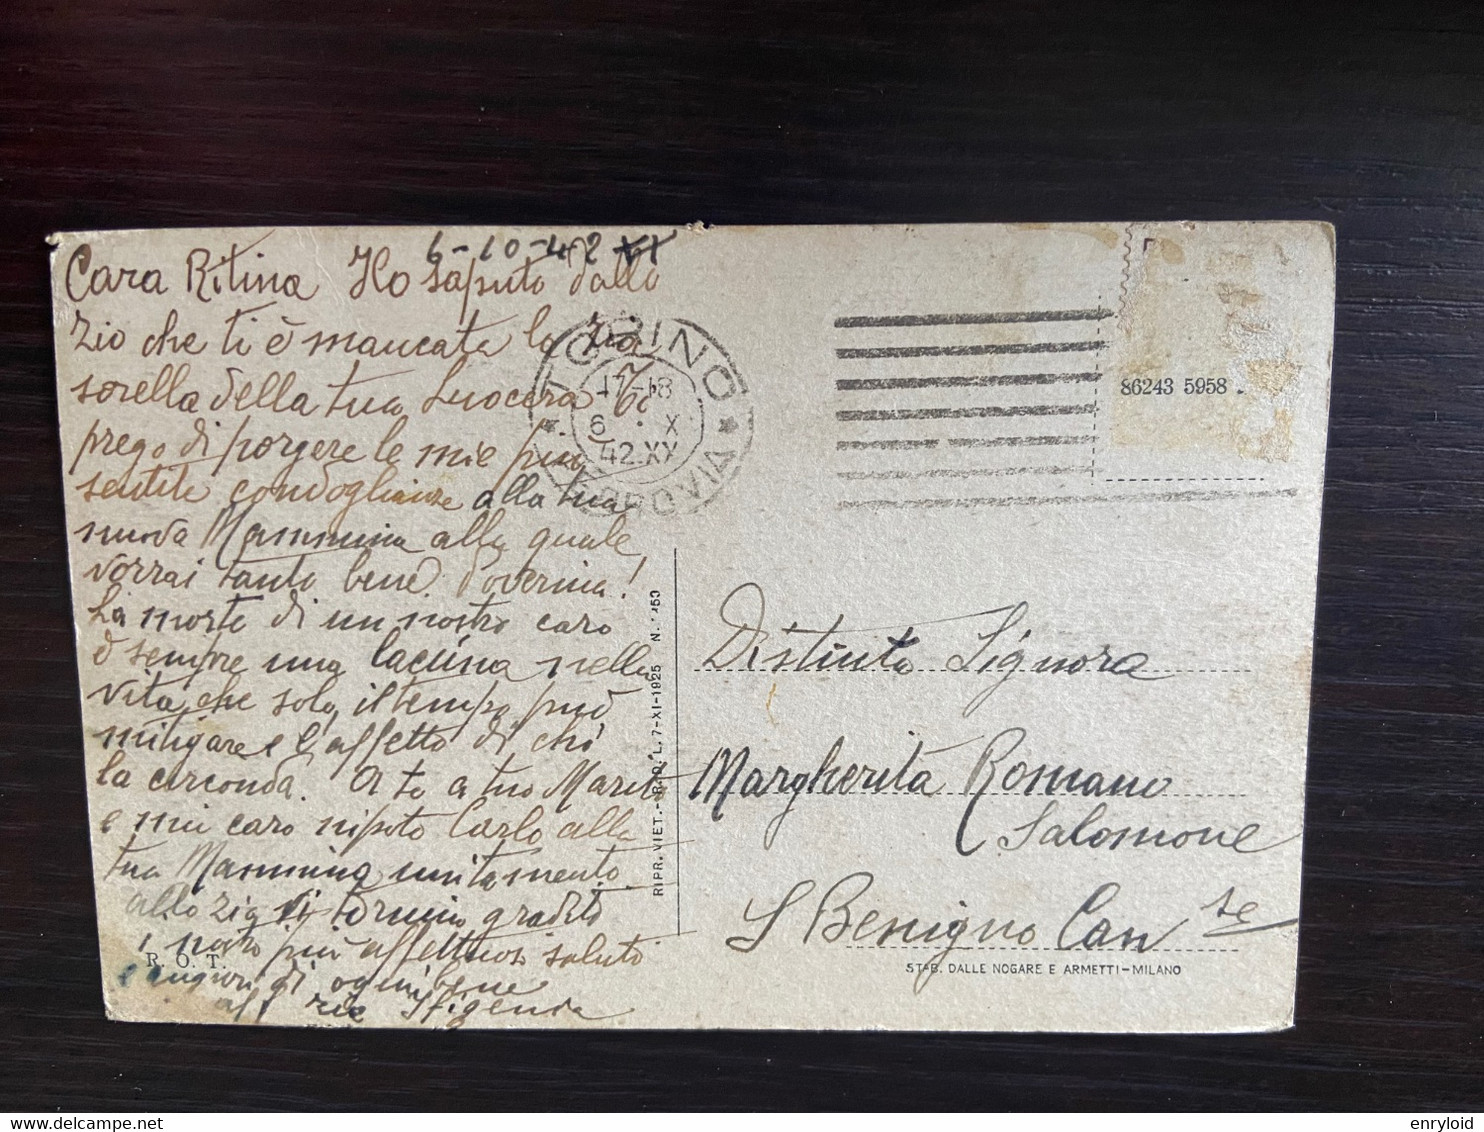 6-10-42 XX
Cara Ritina Ho saputo dallo
zio che ti è mancata la zia
sorella della tua suocera Ti
prego di porgere le mie più
sentite condoglianze alla tua
nuova Mammina alla quale
vorrai tanto bene. Poverina!
La morte di un nostro caro
è sempre una lacuna nella
vita, che solo il tempo può
mitigare e l'affetto di chi
la circonda. A te a tuo Marito
e mio caro nipote Carlo alla
tua Mammina unitamente
allo zio gradite
i nostri più affettuosi saluti
e auguri di ogni bene
aff zia Ifigenia
TORINO
17-18
6 . X
42.XX
FERROVIA
86243 5958
Distinta Signora
Margherita Romano
Salomone
S Benigno Can se
RIPR. VIET.- R.D.L. 7-XI-1925 N.
R. O. T.
STAB. DALLE NOGARE E ARMETTI-MILANO
delcampe.net
enryloid